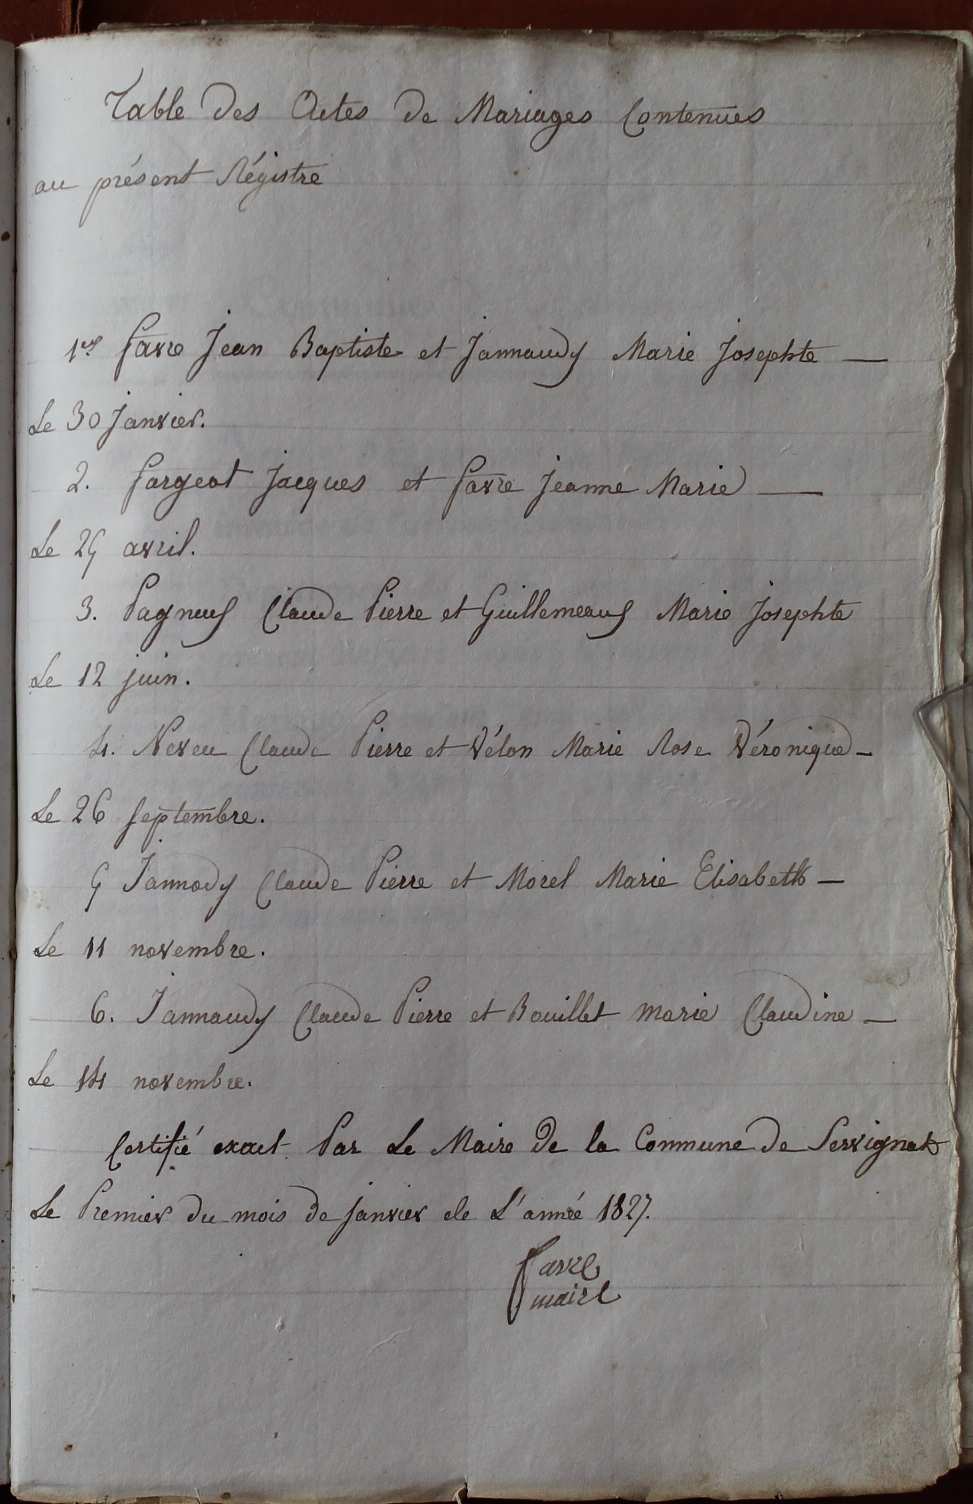 Table des Actes de Mariages Contenues
au présent Régistre
1er favre Jean Baptiste et Jannaudy Marie Josephte —
Le 30 Janvier.
2. fargeot Jacques et favre Jeanne Marie —
Le 25 avril.
3. Pagneux Claude Pierre et Guillemeaux Marie Josephte
Le 12 juin.
4. Neveu Claude Pierre et Vélon Marie Rose Véronique —
Le 26 septembre.
5 Jannody Claude Pierre et Morel Marie Elisabeth —
Le 11 novembre.
6. Jannaudy Claude Pierre et Bouillet Marie Claudine —
Le 14 novembre.
Certifié exact Par Le Maire de la Commune de Servignat
Le Premier du mois de janvier de L'année 1827.
favre
maire